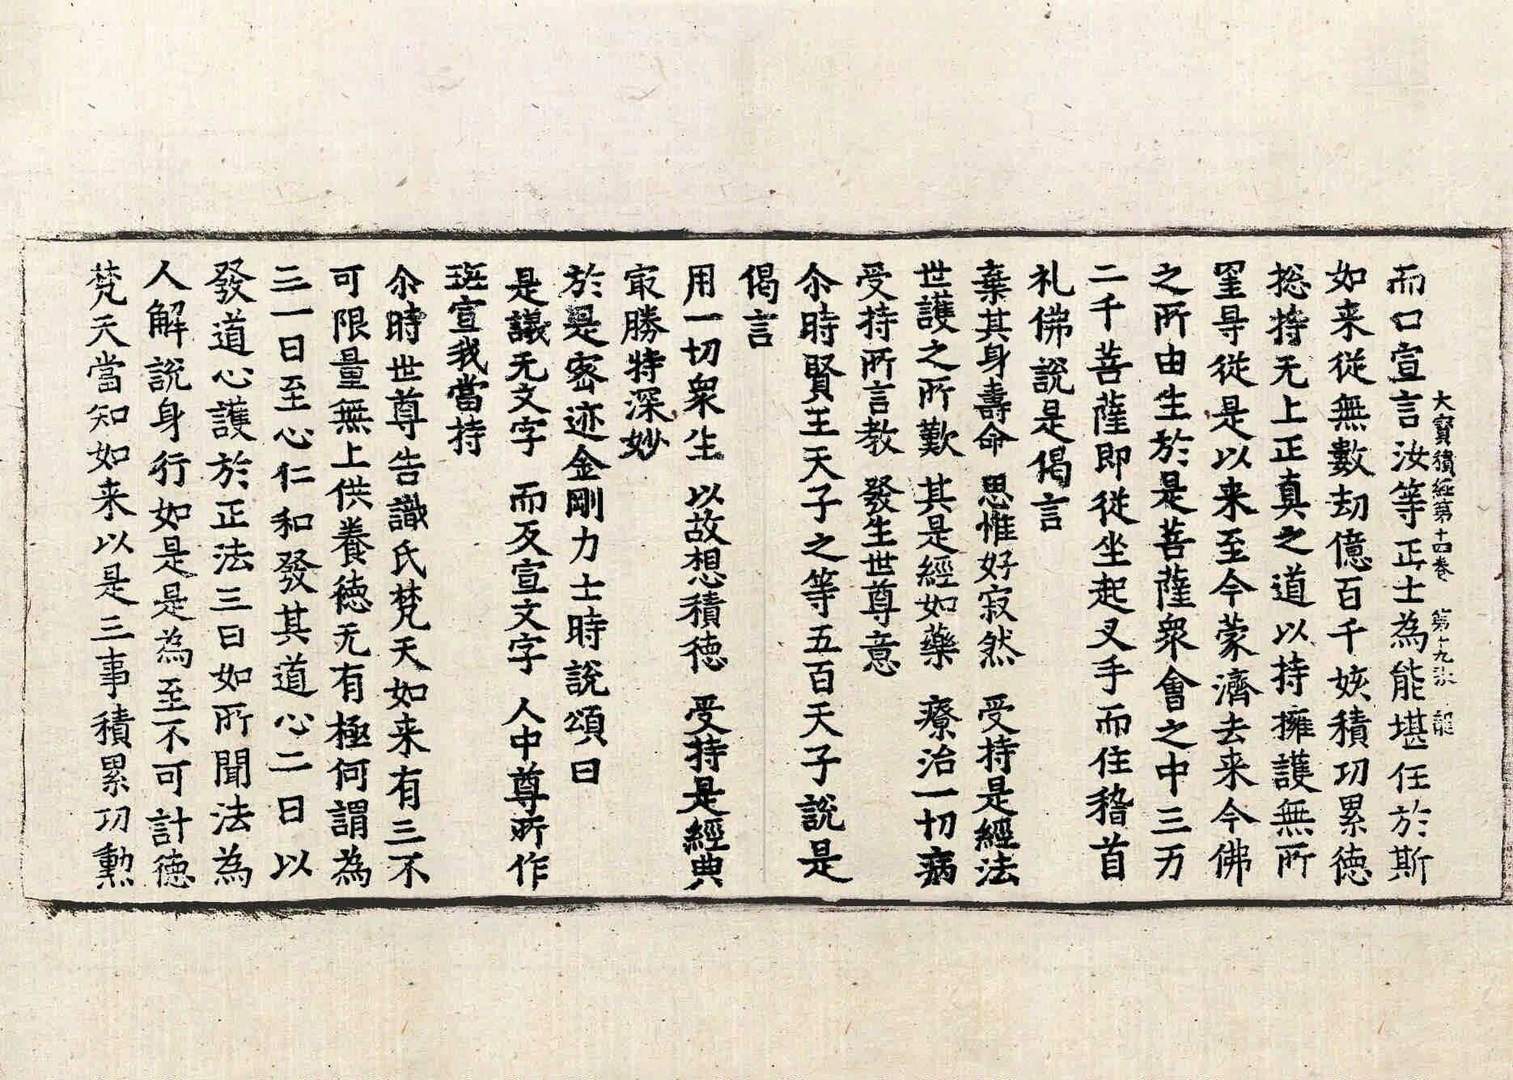 大寶積經第十四卷 第十九張 龍
而口宣言汝等正士為能堪任於斯
如来從無數劫億百千姟積功累徳
捴持无上正真之道以持擁護無所
罣㝵從是以来至今蒙濟去来今佛
之所由生於是菩薩衆會之中三万
二千菩薩即從坐起叉手而住稽首
礼佛說是偈言
棄其身壽命 思惟好寂然 受持是經法
世護之所歎 其是經如藥 療治一切病
受持所言教 發生世尊意
尒時賢王天子之等五百天子說是
偈言
用一切衆生 以故想積徳 受持是經典
㝡勝特深妙
於是密迹金剛力士時說頌曰
是議无文字 而反宣文字 人中尊所作
班宣我當持
尒時世尊告識氏梵天如来有三不
可限量無上供養徳无有極何謂為
三一曰至心仁和發其道心二曰以
發道心護於正法三曰如所聞法為
人解說身行如是是為至不可計徳
梵天當知如来以是三事積累功勲